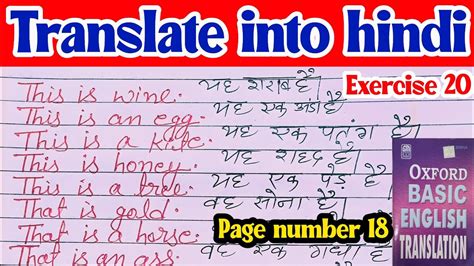 Translate into hindi
Exercise 20
This is wine. यह शराब है।
This is an egg. यह एक अंडा है।
This is a kite. यह एक पतंग है।
This is honey. यह शहद है।
This is a tree. यह एक पेड़ है
That is gold. वह सोना है।
That is a horse.
That is an ass. वह एक गधा है
Page number 18
OXFORD
BASIC
ENGLISH
TRANSLATION